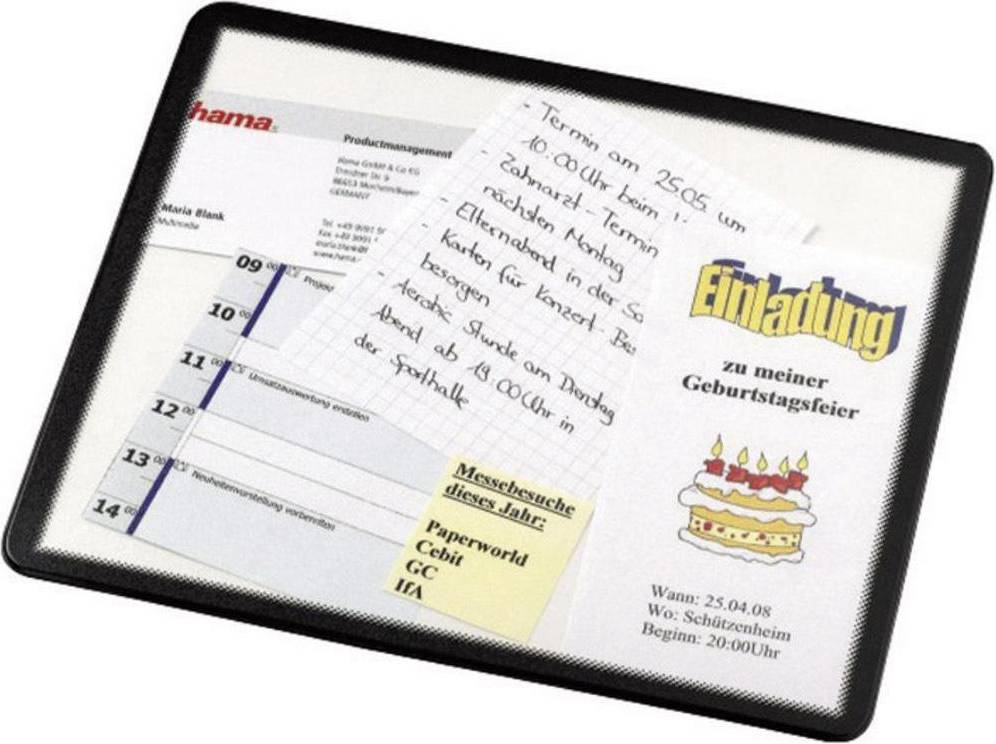 hama®
Productmanagement
Hama GmbH & Co KG
Dresdner Str. 9
86653 Monheim/Bayern
GERMANY
Maria Blank
Multimedia
Tel. +49 9091 50
Fax +49 9091
maria.blank@
www.hama.
- Termin am 25.05. um
10.00 Uhr beim
- Zahnarzt - Termin
nächsten Montag
- Elternabend in der Sc
- Karten für Konzert-
besorgen
- Aerobic Stunde am Dienstag
Abend ab 19.00 Uhr in
der Sporthalle
09 00 Projek
10 00
11 00 Umsatzauswertung erstellen
12 00
13 00 Neuheitenvorstellung vorbereiten
14 00
Messebesuche
dieses Jahr:
Paperworld
Cebit
GC
IfA
Einladung
zu meiner
Geburtstagsfeier
Wann: 25.04.08
Wo: Schützenheim
Beginn: 20:00Uhr